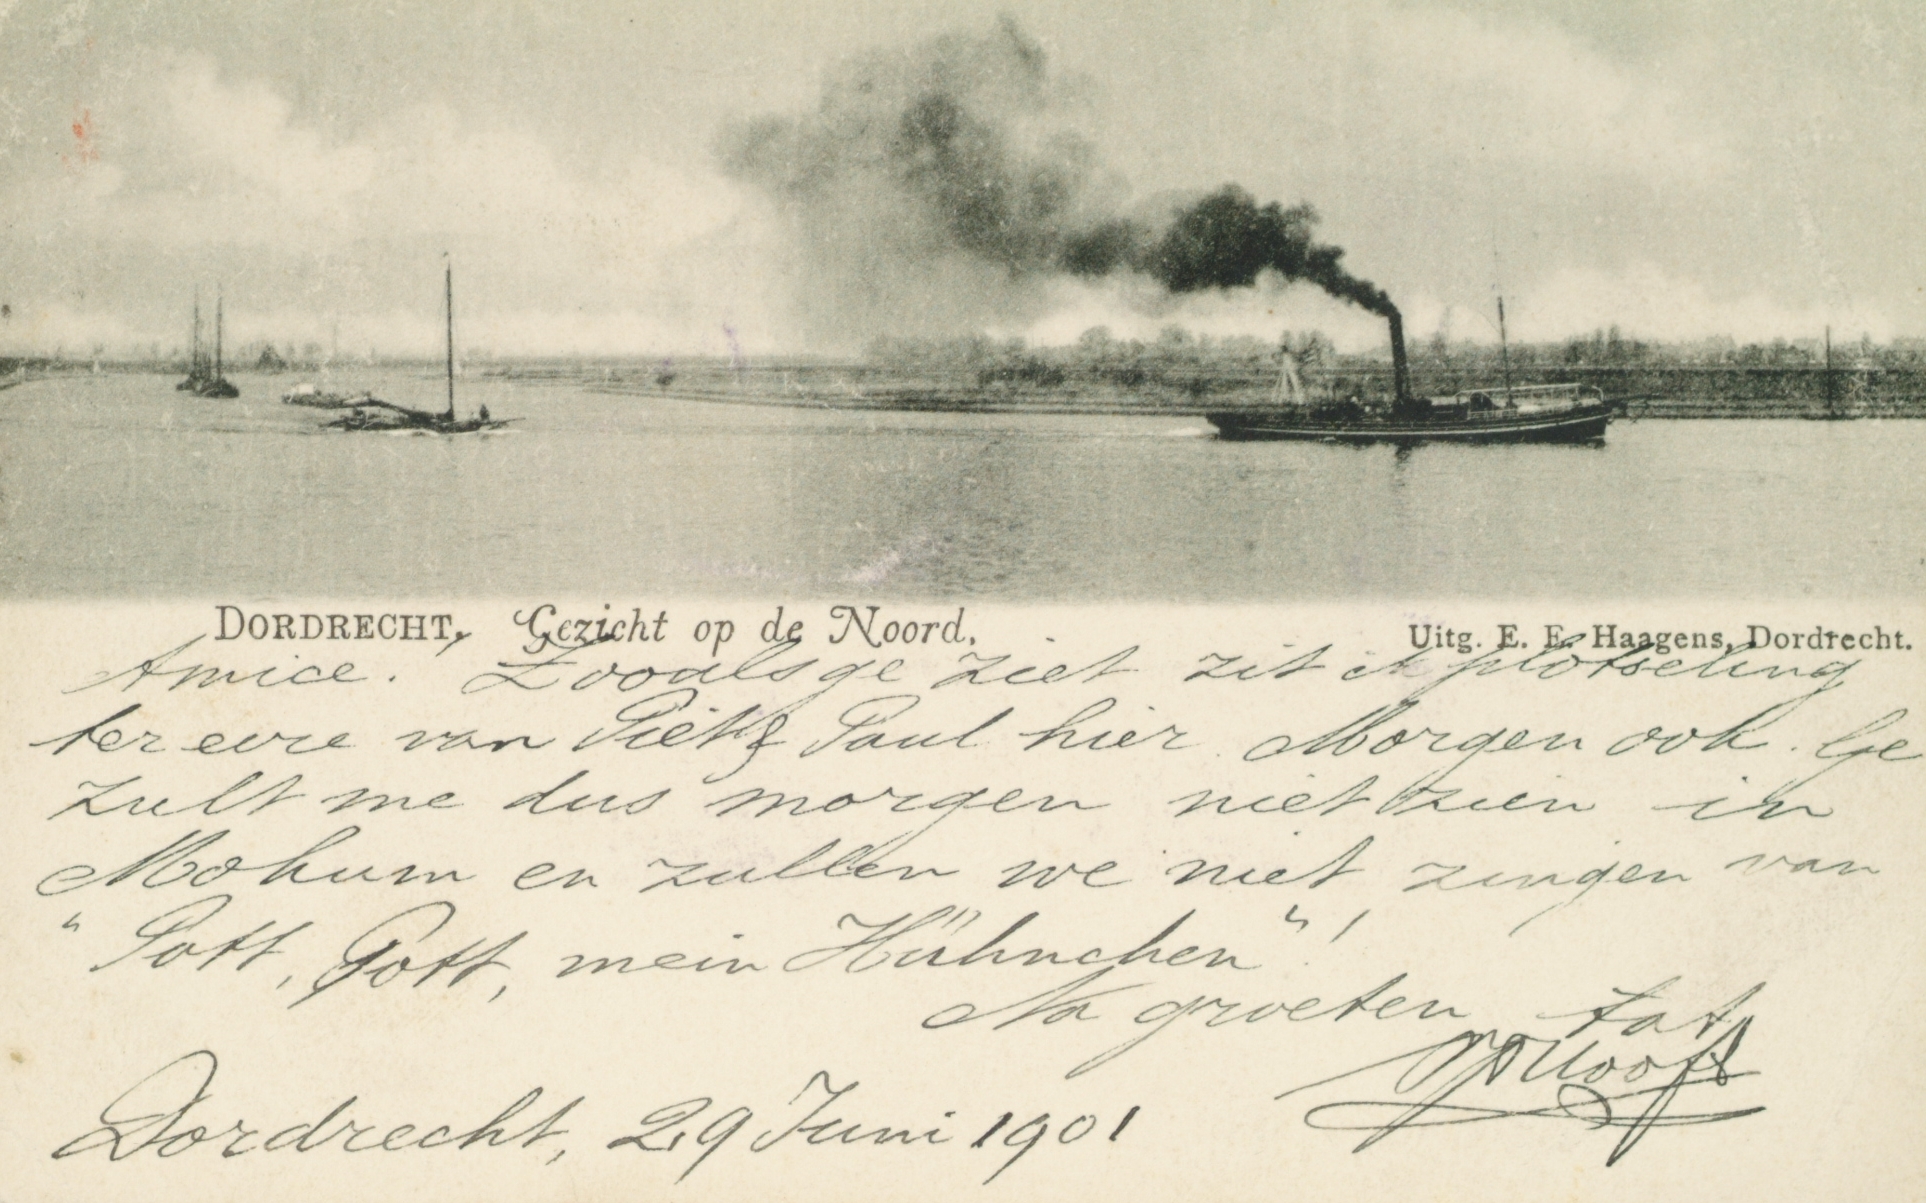 DORDRECHT, Gezicht op de Noord.
Uitg. E. E. Haagens, Dordrecht.
Amice. Zooals ge ziet zit ik plotseling
ter eere van Piet & Paul hier. Morgen ook. Ge
zult me dus morgen niet zien in
Mokum en zullen we niet zingen van
"Gott, Gott, mein Hühnchen"!
Na groeten tat
Dordrecht, 29 Juni 1901